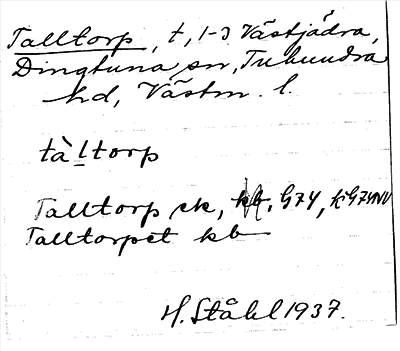 Talltorp, t, 1-3 Västjädra,
Dingtuna sn, Tuhundra
hd, Västm. l.
tàltorp
Talltorp ek, kb, G74, kG74NV
Talltorpet kb
H. Ståhl 1937.